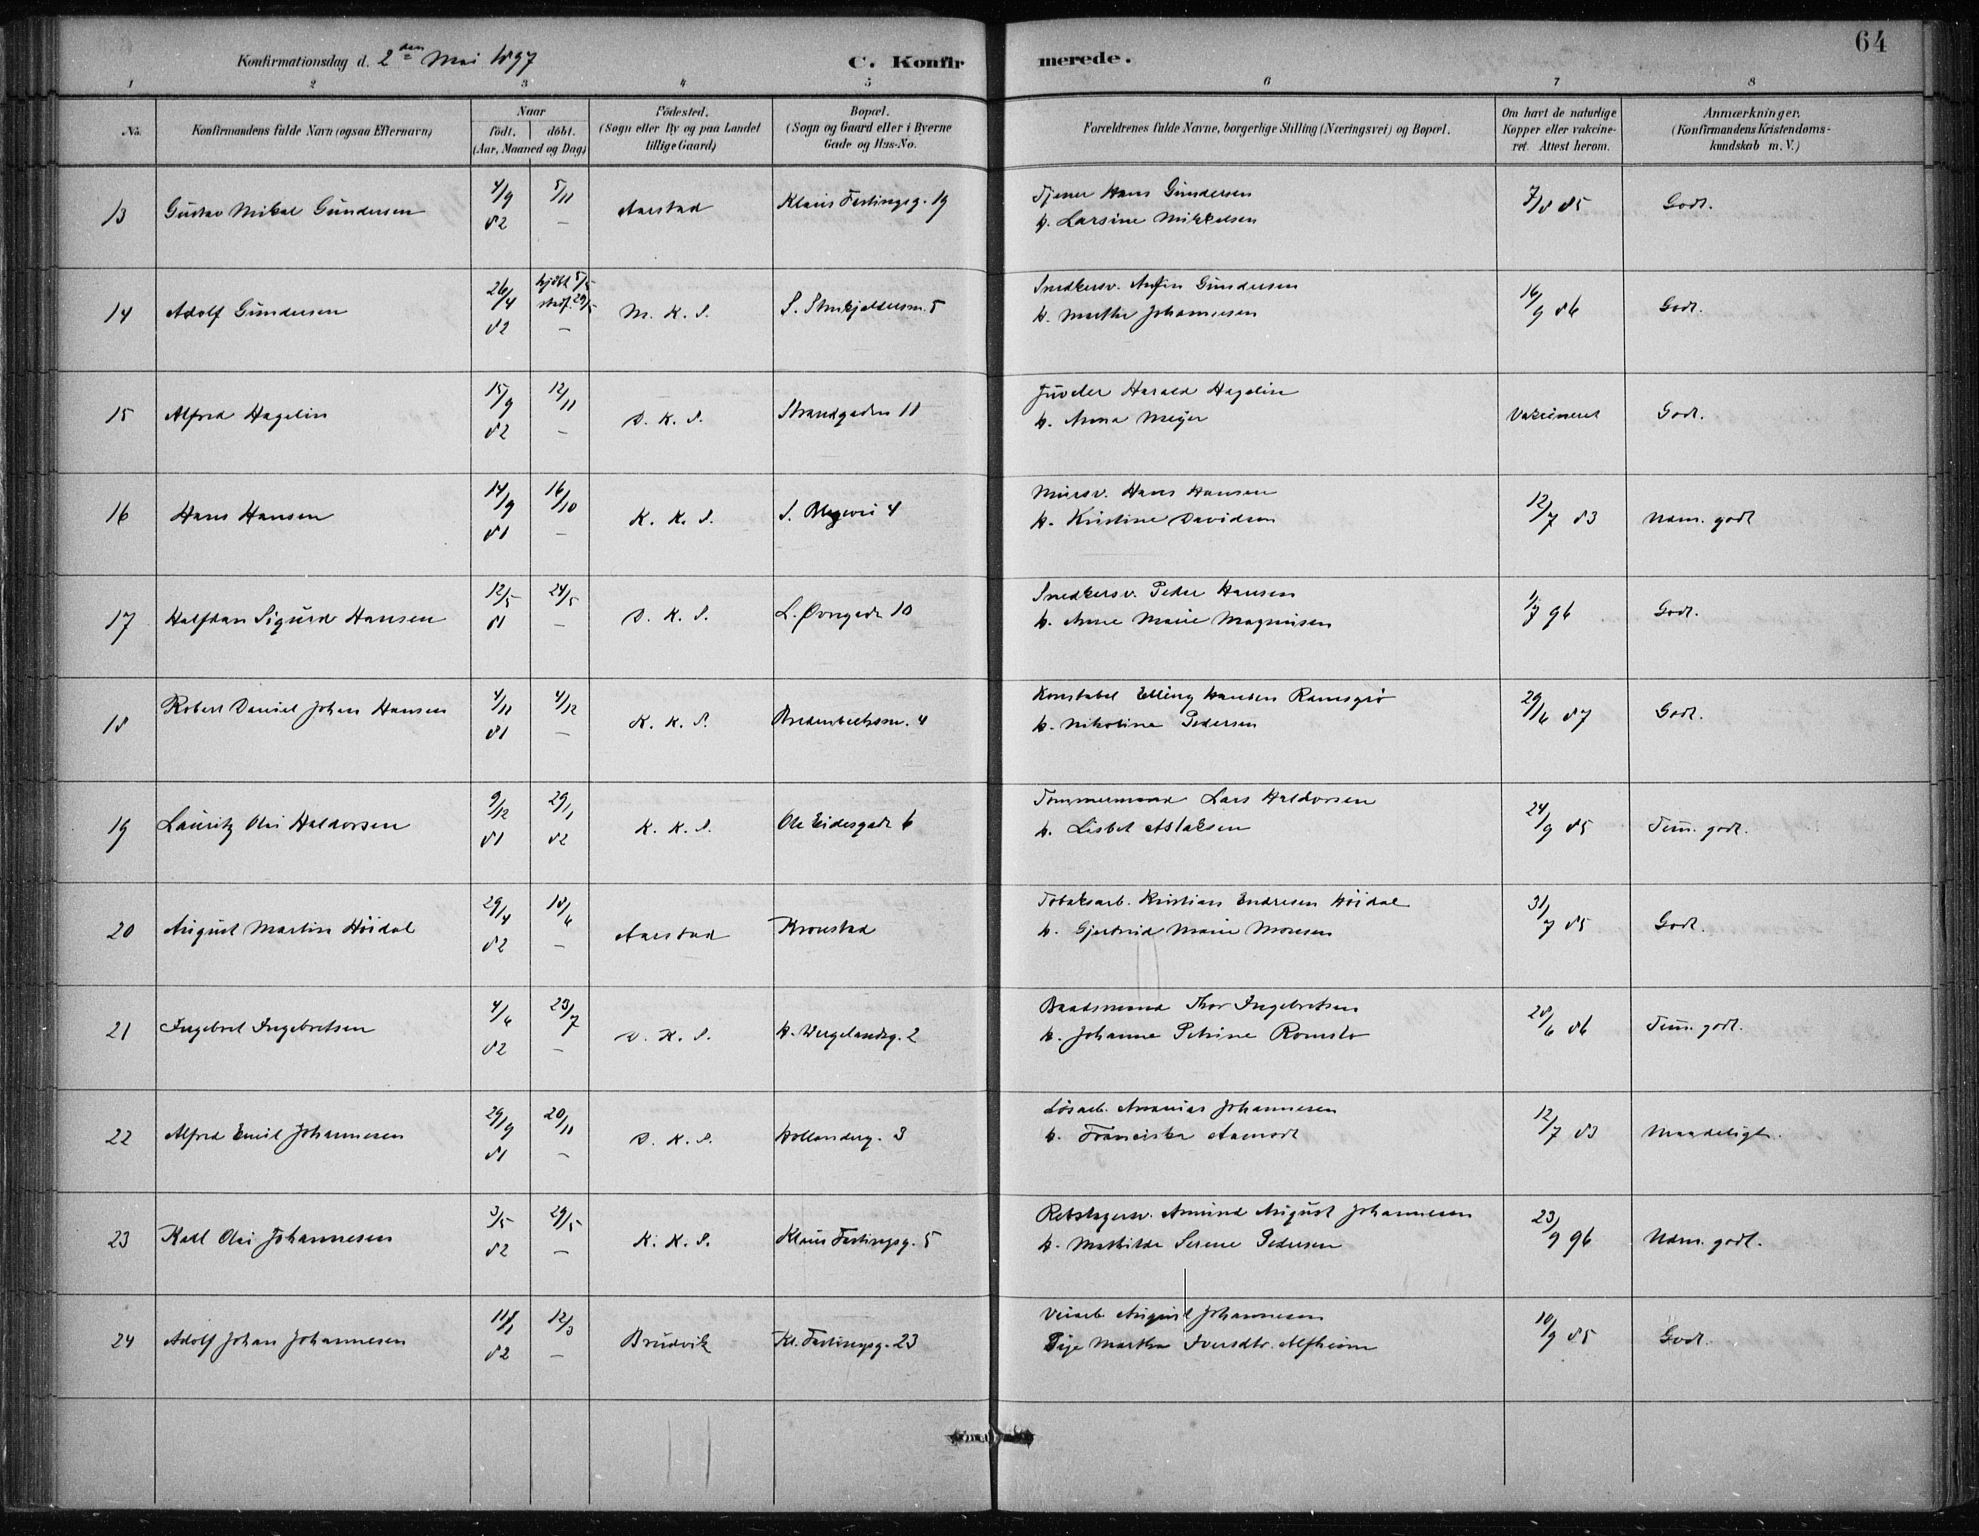 64
Konfirmationsdag d. 2den Mai 1897
C. Konfirmerede.
1 2 3 4 5 6 7 8
No. Konfirmandens fulde Navn (ogsaa Efternavn) Naar födt. döbt. (Aar, Maaned og Dag) Födested. (Sogn eller By og paa Landet tillige Gaard) Bopæl. (Sogn og Gaard eller i Byerne Gade og Hus-No. Forældrenes fulde Navne, borgerlige Stilling (Næringsvei) og Bopæl. Om havt de naturlige Kopper eller vakcineret. Attest herom. Anmærkninger. (Konfirmandens Kristendomskundskab m. V.)
13 Gustav Mikal Gundersen 4/9 82 5/11 — Aarstad Klaus Fastingsg. 19 Tjener Hans Gundersen 7/8 85 Godt.
h. Larsine Mikkelsen
14 Adolf Gundersen 26/4 82 hjdbt 5/5 stadf. 29/5 — M. K. S. S. Stenkjeldersm. 5 Snedkersv. Anfin Gundersen 16/9 86 Godt.
h. Marthe Johannesen
15 Alfred Hagelin 15/9 82 12/11 — D. K. S. Strandgaden 11 Juveler Harald Hagelin Vakcineret Godt.
h. Anna Meyer
16 Hans Hansen 14/9 81 16/10 — K. K. S. S. Blegevei 4 Mursv. Hans Hansen 12/7 83 Udm. godt
h. Kristine Davidsen
17 Halfdan Sigurd Hansen 12/5 81 24/5 — D. K. S. L. Øvregade 10 Snedkersv. Peder Hansen 1/7 96 Godt.
h. Anne Marie Magnusen
18 Robert Daniel Johan Hansen 4/11 81 4/12 — K. K. S. Bredenbecksm. 4 Konstabel Elling Hansen Ramsgrö 29/6 87 Godt.
h. Nikoline Pedersen
19 Lauritz Olai Haldorsen 9/12 81 29/1 82 K. K. S. Ole Eidesgade 6 Tømmermand Lars Haldorsen 24/9 85 Tem. godt.
h. Lisbet Aslaksen
20 August Martin Höidal 29/4 82 18/6 — Aarstad Kronstad Tobaksarb. Kristian Endresen Höidal 31/7 85 Godt.
h. Gjertrud Marie Monsen
21 Ingebret Ingebretsen 4/6 82 23/7 — D. K. S. H. Wergelandsg. 2 Baadsmand Thor Ingebretsen 28/6 86 Tem. godt.
h. Johanne Petrine Romslo
22 Alfred Emil Johannesen 29/9 81 20/11 — D. K. S. Hollenderg. 3 Løsarb. Ananias Johannesen 12/7 83 Maadeligt.
h. Franciska Aamodt
23 Karl Olai Johannesen 3/5 82 29/5 — K. K. S. Klaus Fastingsg. 5 Rebslagersv. Amund August Johannesen 23/9 96 Udm. godt.
h. Mathilde Serene Pedersen
24 Adolf Johan Johannesen 11/1 82 12/3 — Brudvik Kl. Fastingsg. 23 Veiarb. August Johannesen 10/9 85 Godt.
Pige Martha Iversdtr. Alfheim